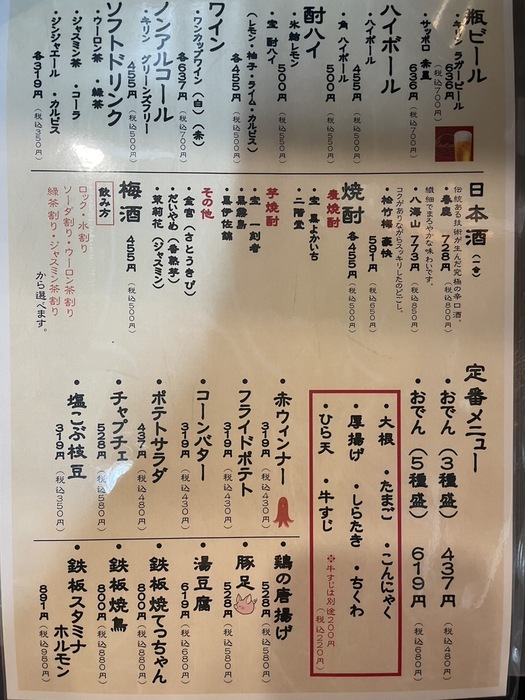 瓶ビール
・キリン ラガービール
636円（税込700円）
・サッポロ 赤星
636円（税込700円）
ハイボール
・ハイボール
455円（税込500円）
・角 ハイボール
500円（税込550円）
酎ハイ
・氷結レモン
500円（税込550円）
・宝 酎ハイ
（レモン・柚子・ライム・カルピス）
各455円（税込500円）
ワイン
・ワンカップワイン（白）（赤）
各637円（税込700円）
ノンアルコール
・キリン グリーンズフリー
455円（税込500円）
ソフトドリンク
・ウーロン茶 ・緑茶
・ジャスミン茶 ・コーラ
・ジンジャエール ・カルピス
各319円（税込350円）
日本酒（一合）
伝統ある技術が生んだ究極の辛口酒。
・春鹿 728円（税込800円）
繊細でまろやかな味わいです。
・八海山 773円（税込850円）
コクがありながらスッキリしたのどごし。
・松竹梅 豪快
591円（税込650円）
焼酎
各455円（税込500円）
麦焼酎
・宝 黒よかいち
・二階堂
芋焼酎
・宝 一刻者
・黒霧島
・黒伊佐錦
その他
・金宮（さとうきび）
・だいやめ（香熟芋）
・茉莉花（ジャスミン）
梅酒
455円（税込500円）
飲み方
ロック・水割り
ソーダ割り・ウーロン茶割り
緑茶割り・ジャスミン茶割り
から選べます。
定番メニュー
・おでん（3種盛）437円（税込480円）
・おでん（5種盛）619円（税込680円）
・大根 ・たまご ・こんにゃく
・厚揚げ ・しらたき ・ちくわ
・ひら天 ・牛すじ
※牛すじは別途200円
（税込220円）
・赤ウィンナー
319円（税込350円）
・フライドポテト
319円（税込350円）
・コーンバター
319円（税込350円）
・ポテトサラダ
437円（税込480円）
・チャプチェ
528円（税込580円）
・塩こぶ枝豆
319円（税込350円）
・鶏の唐揚げ
528円（税込580円）
・豚足
528円（税込580円）
・湯豆腐
619円（税込680円）
・鉄板焼てっちゃん
800円（税込880円）
・鉄板焼鳥
800円（税込880円）
・鉄板スタミナ
ホルモン
891円（税込980円）